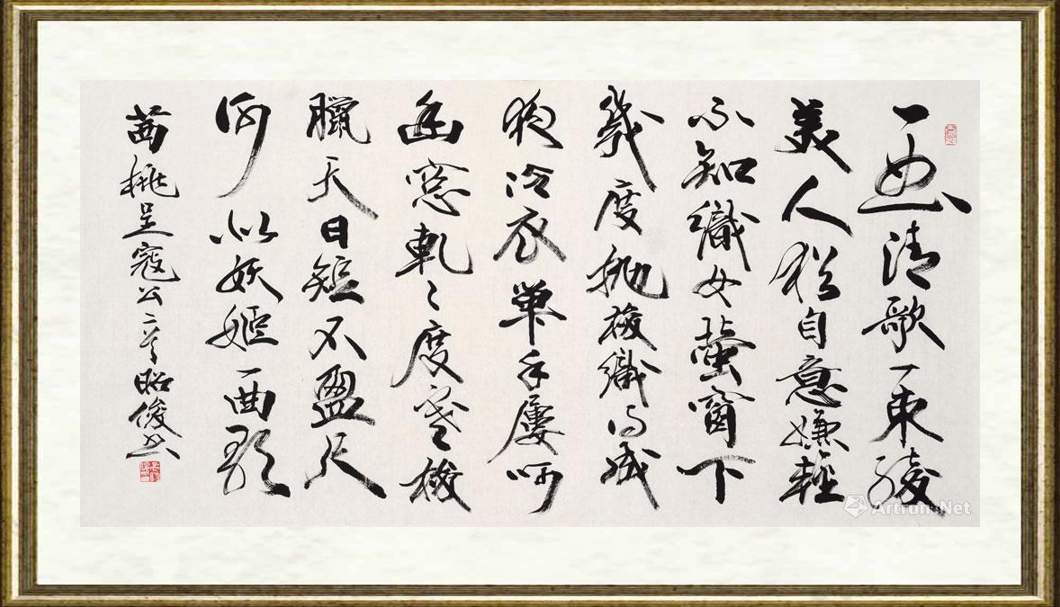 一曲清歌一束绫
美人犹自意嫌轻
不知织女萤窗下
几度抛梭织得成
夜冷衣单手屡呵
幽窗轧〻度寒梭
腊天日短不盈尺
何似妖姬一曲歌
茜桃呈寇公二首 昭俊书
Artron.Net